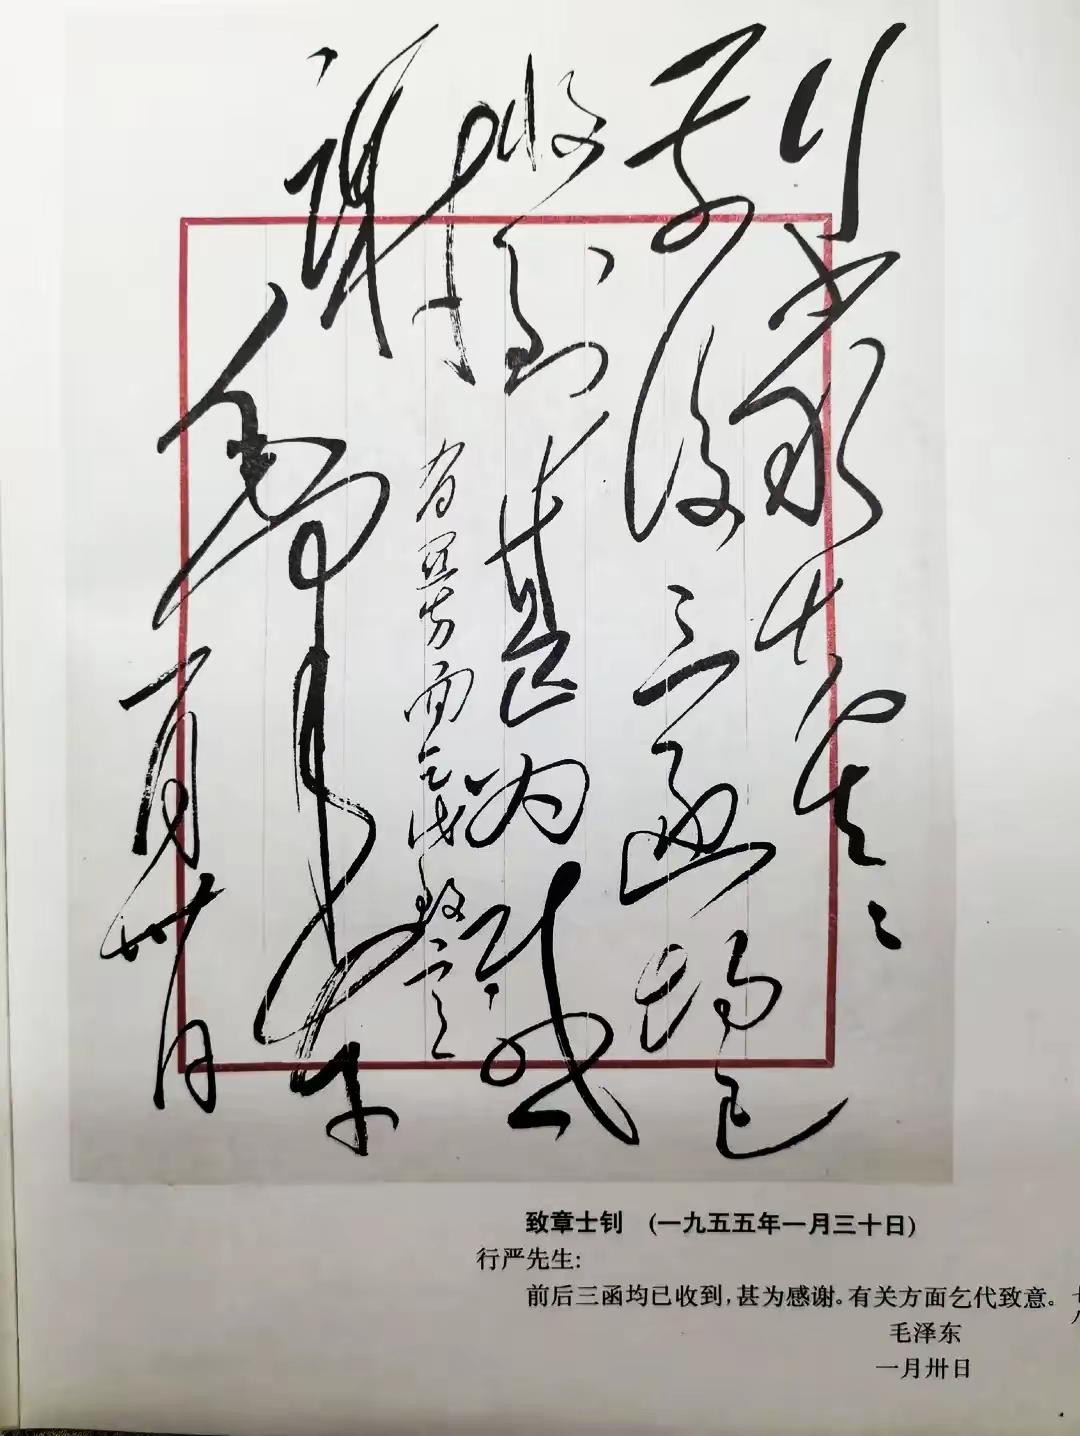 行严先生：
前后三函均已
收到，甚为感
谢。
有关方面乞代致意
毛泽东
一月卅日
致章士钊 (一九五五年一月三十日)
行严先生：
前后三函均已收到，甚为感谢。有关方面乞代致意。
毛泽东
一月卅日